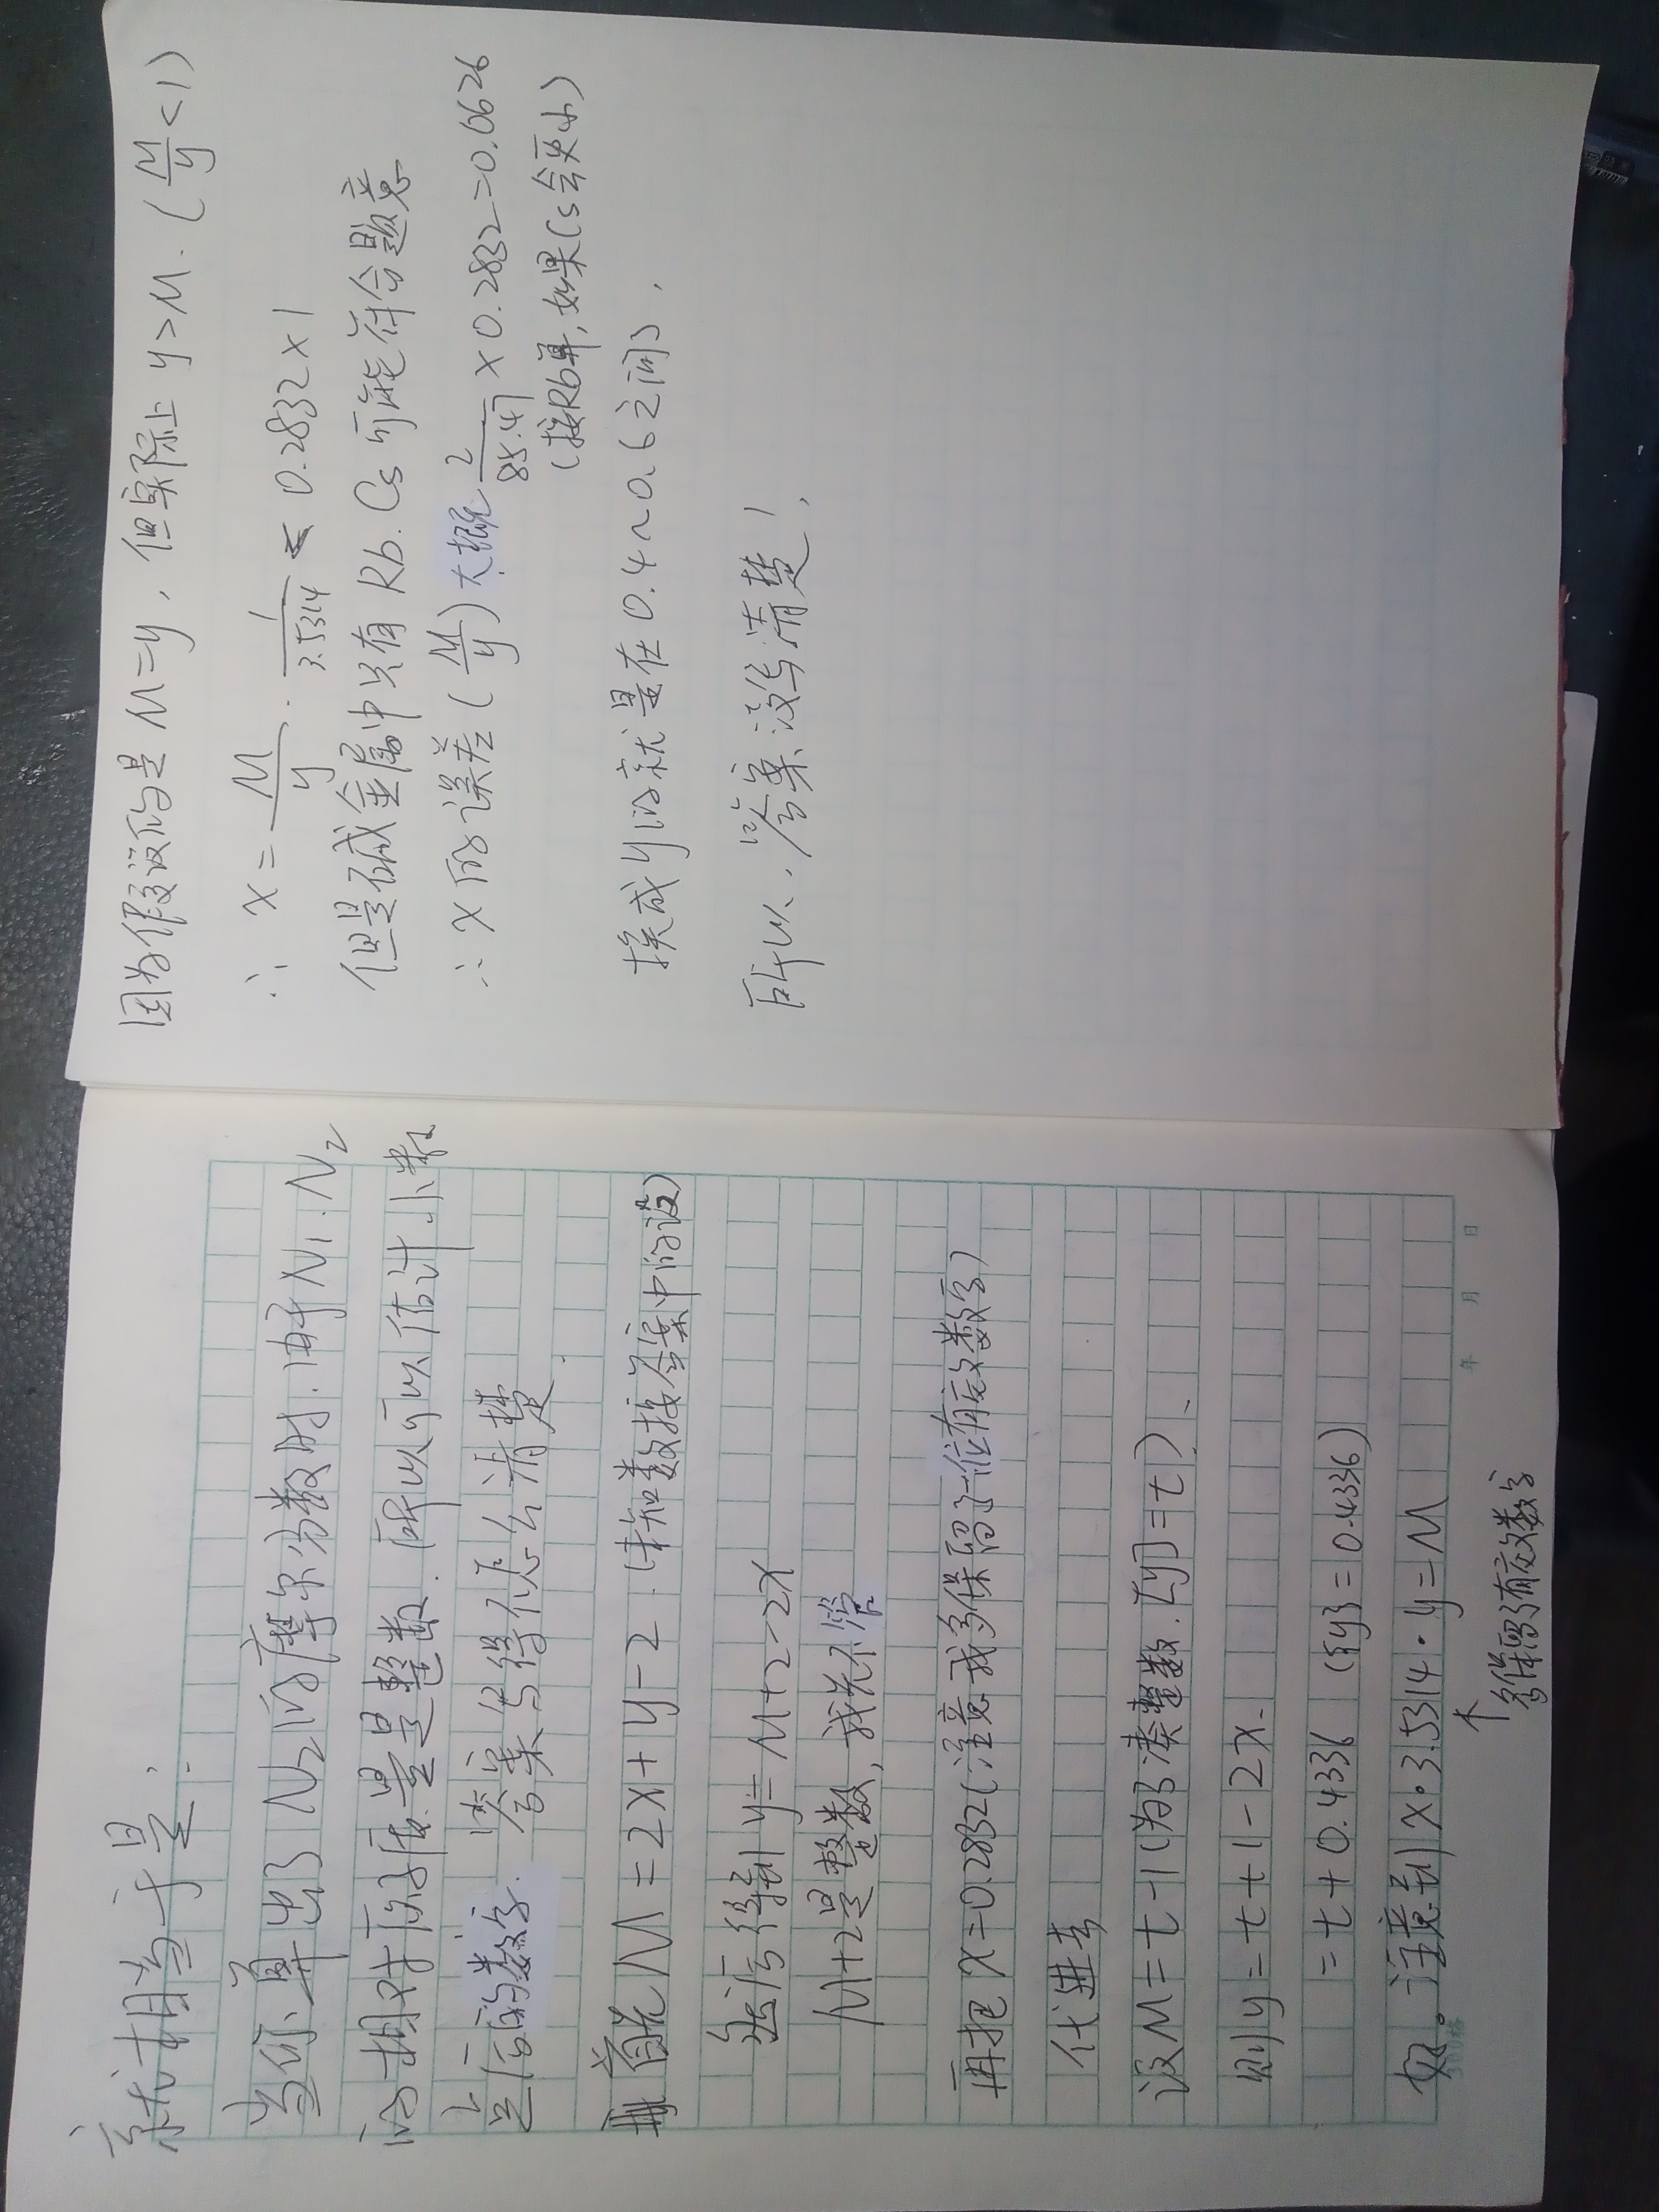 就相当于是：
当你算出了N₂的摩尔分数时，由于N₁、N₂
的相对原子质量是整数，所以可以估计小数
点后的数字，答案写得似乎不么清楚．
首先 M=2x+y-2 （未知数按答案中的设）
然后得到 y=M+2-2x
M+2是整数，我先不管
再把 x=0.2832（注意我多保留了一位有效数字）
代进去
设M=t-1（为了凑整数，[y]=t）、
则 y=t+1-2x
=t+0.4336 （{y}=0.4336）
好。注意到 x·3.5314·y=M
↑
多保留了有效数字
年 月 日
因为假设的是 M=y，但实际上 y>M．（M/y<1）
∴ x=M/y·1/3.5314<0.2832×1
但是碱金属中只有Rb、Cs可能符合题意
∴ x的误差（M/y）大概 2/85.47×0.2832=0.0626
（按Rb算，如果Cs会更小）
换成y的就是在0.4~0.6之间，
所以，答案没写清楚！